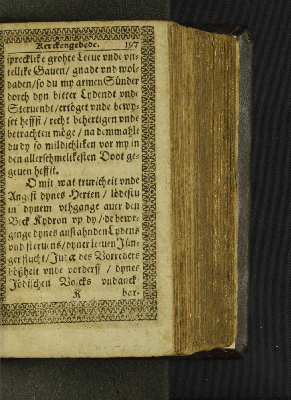 Kerckengebede. 197
sprecklike grohte Leeue vnde vn-
tellike Gauen / gnade vnd wol-
daden / so du my armen Sünder
dorch dyn bitter Lydendt vnde
Steruendt / ertöget vnde bewy-
set heffst / recht behertigen vnde
betrachten möge / na demmahle
du dy so mildichliken vor my in
den allersehmelikesten Dodt ge-
geuen heffst.
O mit wat truricheit vnde
Angst dynes Herten / lödestu
in dynem vthgange auer den
Beck Kydron vp dy / de bewe-
ginge dynes anstahnden Lydens
vnd steruens / dyner leeuen Jün-
ger flucht / Judæ des Vorreders
bößheit vnde vorderff / dynes
Jödischen Volcks vndanck-
K bar-